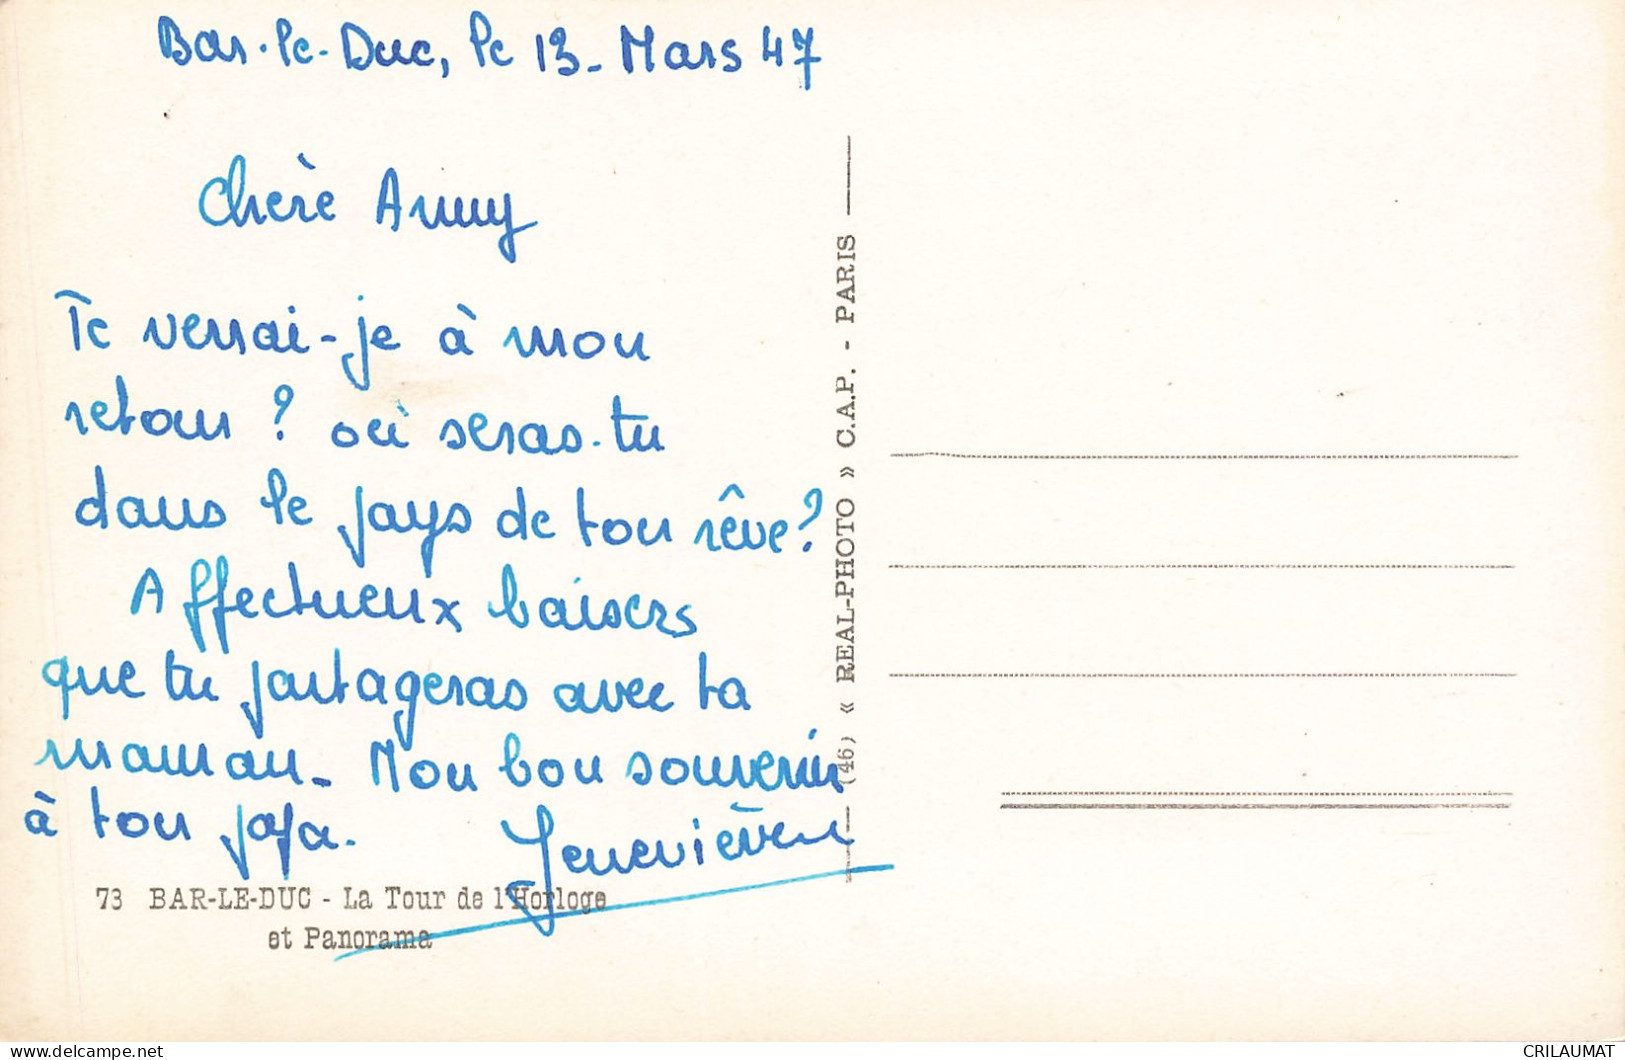 Bar-le-Duc, le 13 - Mars 47
Chère Anny
Te verrai-je à mon
retour ? où seras-tu
dans le pays de ton rêve ?
Affectueux baisers
que tu partageras avec ta
maman - Mon bon souvenir
à ton papa.
Geneviève
73 BAR-LE-DUC - La Tour de l'Horloge
et Panorama
(46) « REAL-PHOTO » C.A.P. - PARIS
delcampe.net
CRILAUMAT